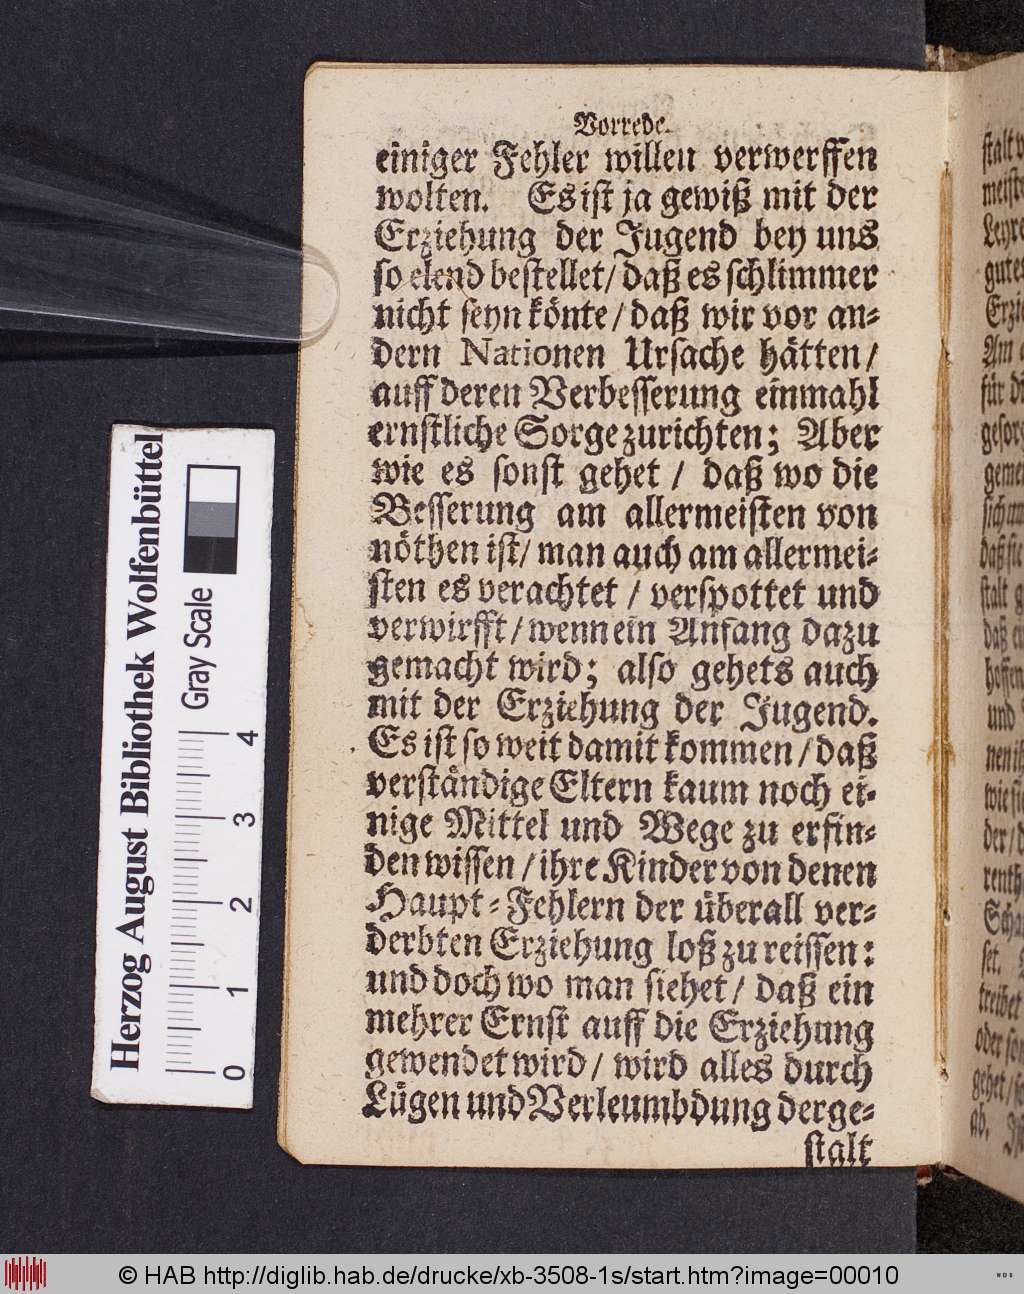 Vorrede.
einiger Fehler willen verwerffen
wolten. Es ist ja gewiß mit der
Erziehung der Jugend bey uns
so elend bestellet/ daß es schlimmer
nicht seyn könte/ daß wir vor an-
dern Nationen Ursache hätten/
auff deren Verbesserung einmahl
ernstliche Sorge zurichten; Aber
wie es sonst gehet / daß wo die
Besserung am allermeisten von
nöthen ist/ man auch am allermei-
sten es verachtet / verspottet und
verwirfft/ wenn ein Anfang dazu
gemacht wird; also gehets auch
mit der Erziehung der Jugend.
Es ist so weit damit kommen/ daß
verständige Eltern kaum noch ei-
nige Mittel und Wege zu erfin-
den wissen / ihre Kinder von denen
Haupt-Fehlern der überall ver-
derbten Erziehung loß zu reissen:
und doch wo man siehet/ daß ein
mehrer Ernst auff die Erziehung
gewendet wird/ wird alles durch
Lügen und Verleumbdung derge-
stalt
Herzog August Bibliothek Wolfenbüttel
Gray Scale
0 1 2 3 4
© HAB http://diglib.hab.de/drucke/xb-3508-1s/start.htm?image=00010